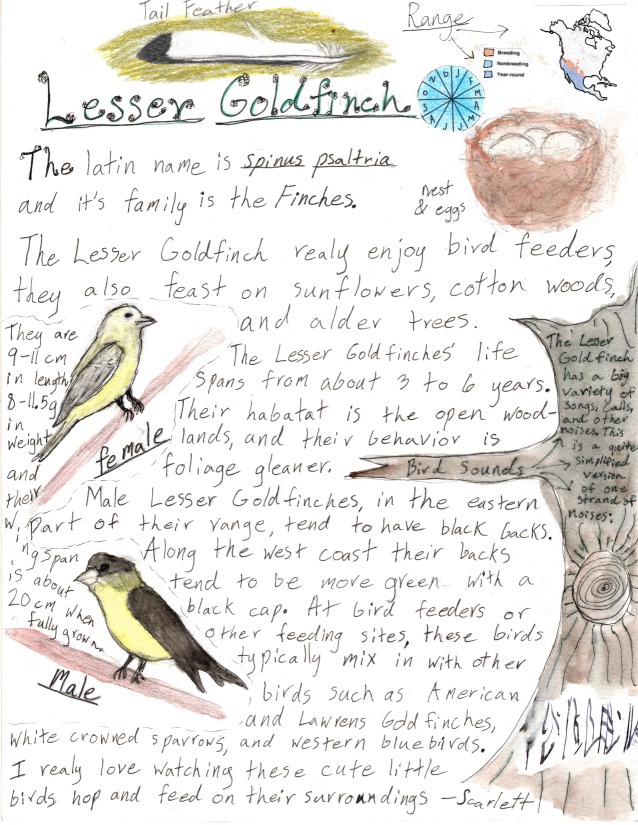 Tail Feather
Range
Breeding
Nonbreeding
Year-round
J F M A M J J A S O N D
Lesser Goldfinch
The latin name is spinus psaltria
and it's family is the Finches.
nest
& eggs
The Lesser Goldfinch realy enjoy bird feeders,
they also feast on sunflowers, cotton woods,
and alder trees.
They are
9-11 cm
in length
8-11.5g
in
weight
and
their
wi
ngspan
is about
20 cm when
fully grown.
female
Male
The Lesser Goldfinches' life
spans from about 3 to 6 years.
Their habatat is the open wood-
lands, and their behavior is
foliage gleaner.
Male Lesser Goldfinches, in the eastern
part of their range, tend to have black backs.
Along the west coast their backs
tend to be more green with a
black cap. At bird feeders or
other feeding sites, these birds
typically mix in with other
birds such as American
and Lawrens Goldfinches,
white crowned sparrows, and western bluebirds.
I realy love watching these cute little
birds hop and feed on their surroundings -Scarlett
Bird Sounds
The Lesser
Goldfinch
has a big
variety of
songs, calls,
and other
noises. This
is a quite
simplified
version
of one
strand of
noises: